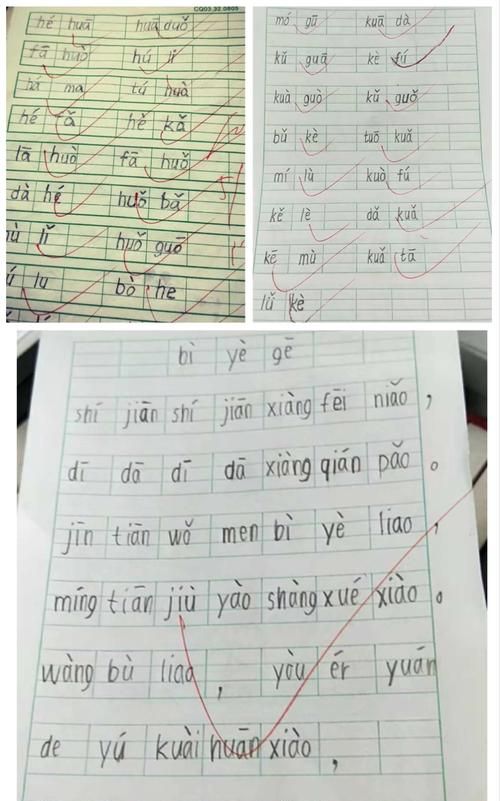 CQ03.32.0805
hé huā huā duǒ
fā huò hú li
há ma tú huà
hé fǎ hě kǎ
lā huò fā huǒ
dà hé huǒ bǎ
lǐ huǒ guō
lu bò he
mó gū kuā dà
kǔ guā kè fú
kuà guò kǔ guǒ
bǔ kè tuō kuǎ
mí lù kuò fú
kě lè dǎ kuǎ
kē mù kuǎ tā
lǜ kè
bì yè gē
shí jiān shí jiān xiàng fēi niǎo，
dī dā dī dā xiàng qián pǎo。
jīn tiān wǒ men bì yè liao，
míng tiān jiù yào shàng xué xiào。
wàng bù liao， yòu ér yuán
de yú kuài huān xiào，